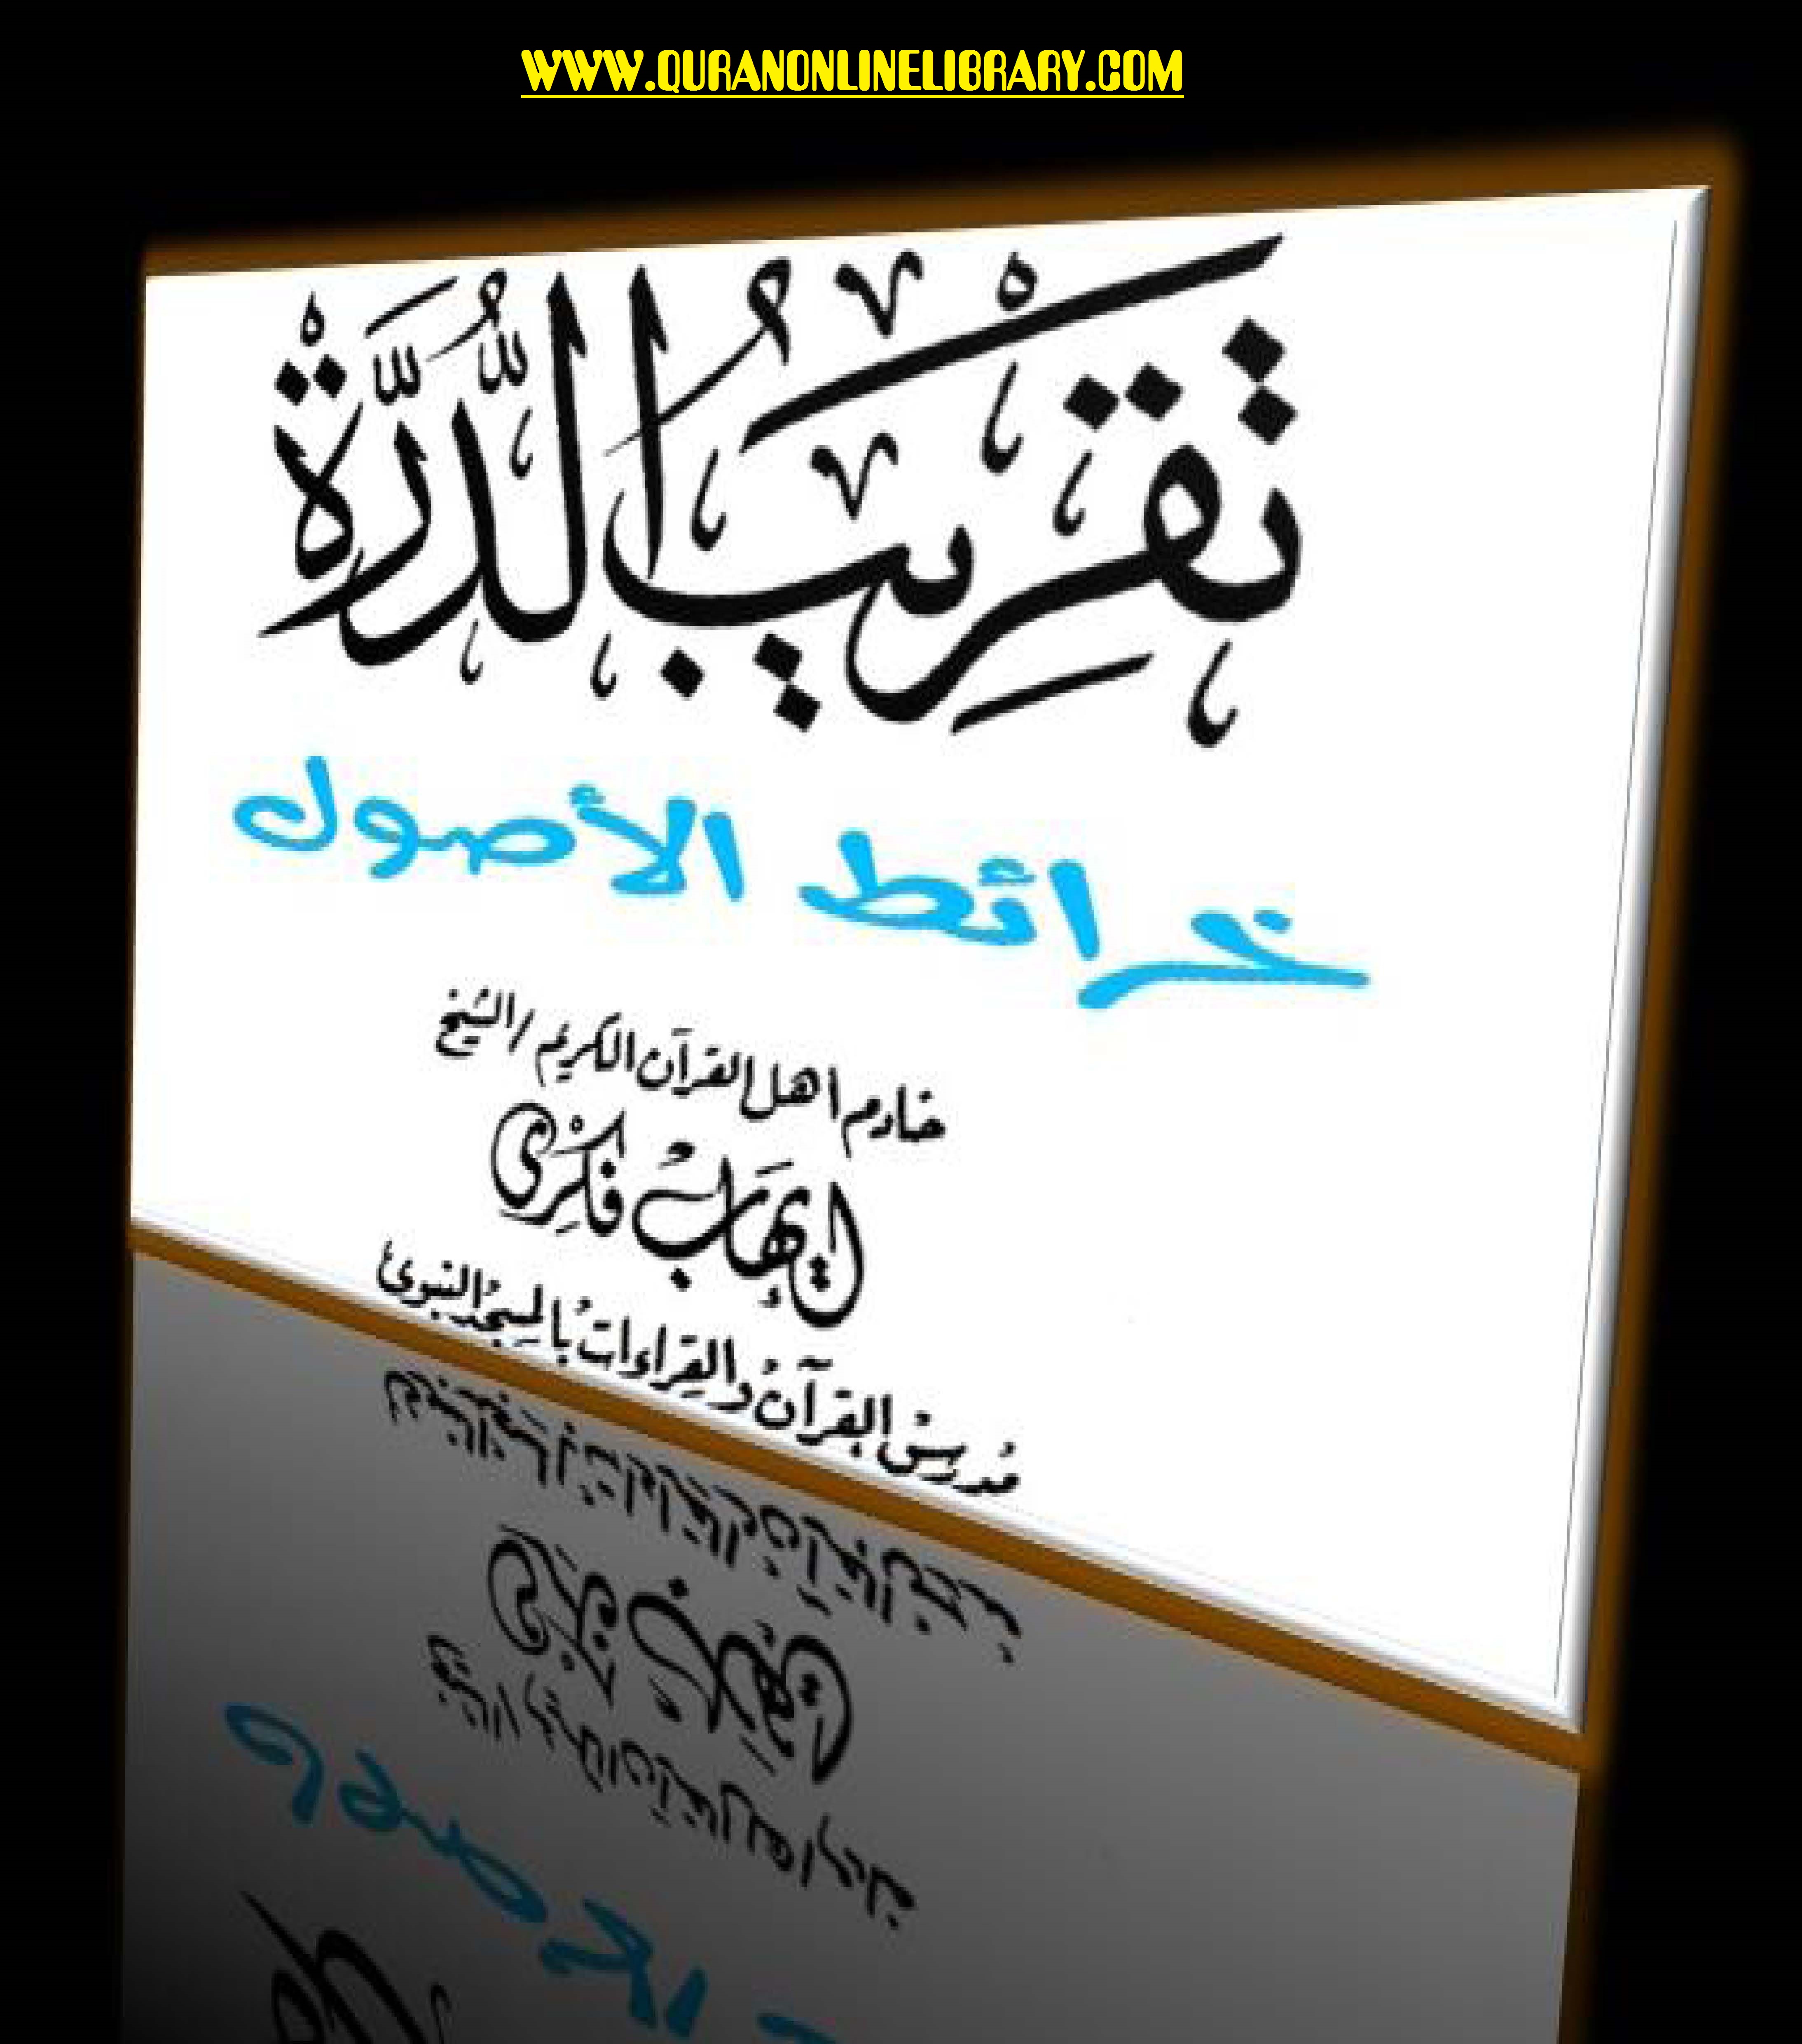 WWW.QURANONLINELIBRARY.COM
تَقْرِيبُ الدُّرَّةْ
خرائط الأصول
خادم أهل القرآن الكريم / الشيخ
إيهَابْ فِكْرِى
مُدرس القرآن والقراءات بالمسجد النبوى